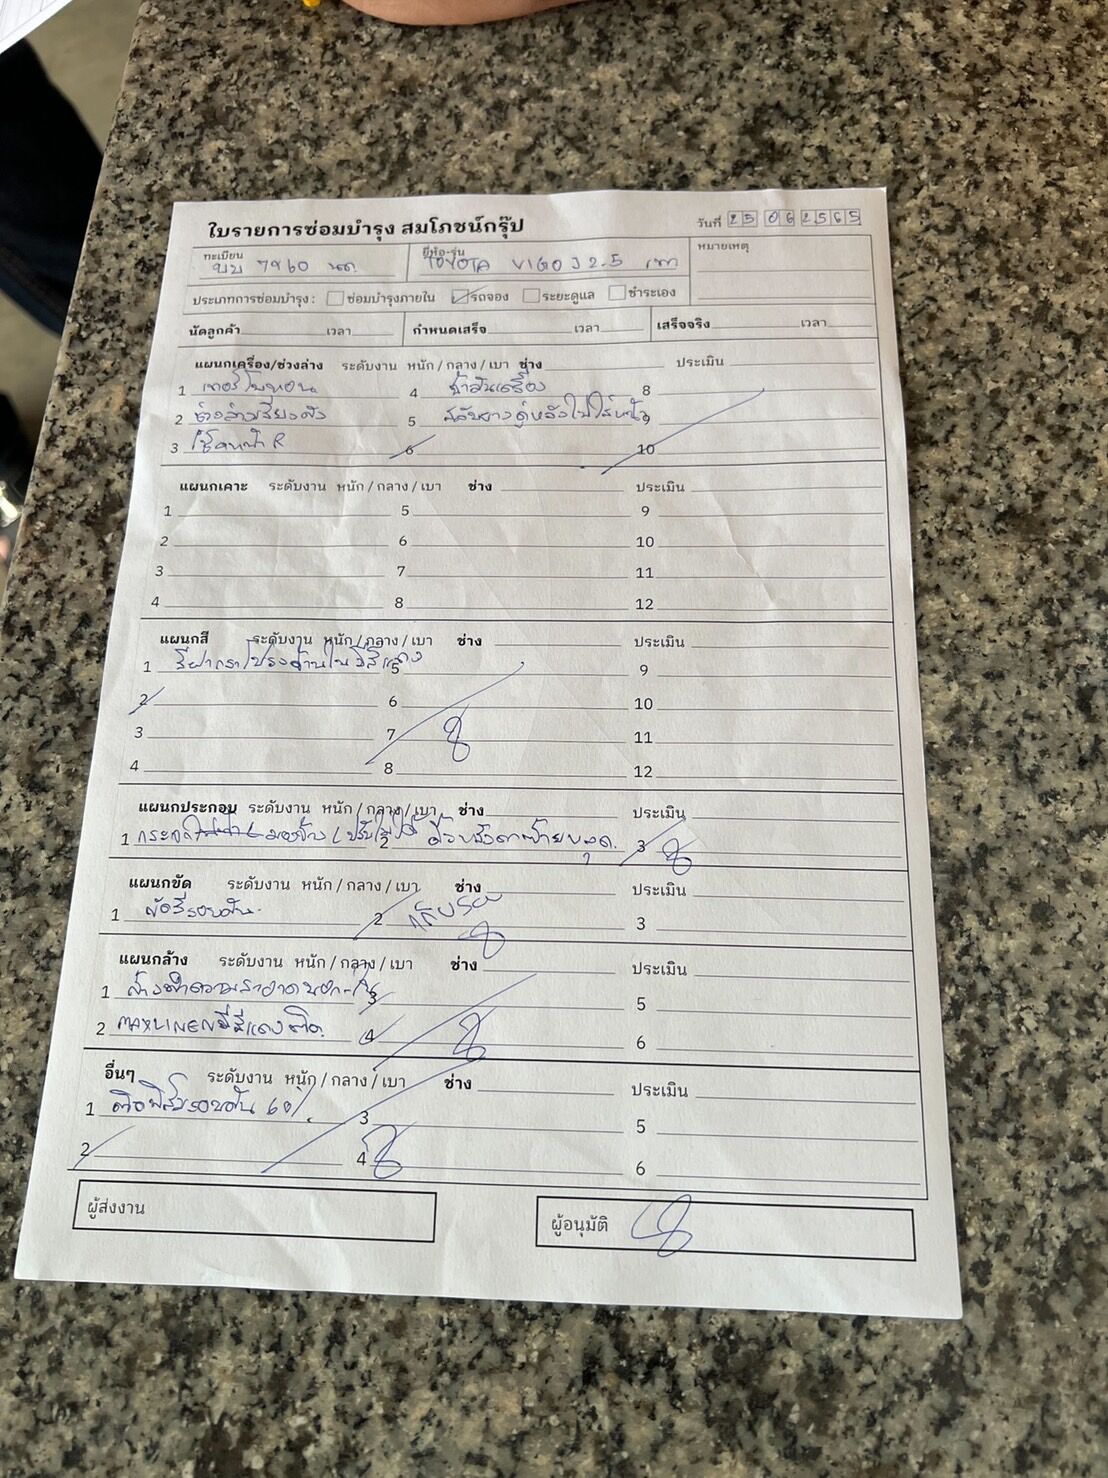 ใบรายการซ่อมบำรุง สมโภชน์กรุ๊ป
วันที่ 25 06 2565
ทะเบียน 7960
ยี่ห้อ-รุ่น TOYOTA VIGO J 2.5 เทา
หมายเหตุ
ประเภทการซ่อมบำรุง : ซ่อมบำรุงภายใน รถจอง ระยะดูแล ชำระเอง
นัดลูกค้า เวลา กำหนดเสร็จ เวลา เสร็จจริง เวลา
แผนกเครื่อง/ช่วงล่าง ระดับงาน หนัก / กลาง / เบา ช่าง ประเมิน
1 เทอร์โบหอน 4 เครื่อง 8
2 ช่วงล่างเสียงดัง 5 สลับยางคู่หลังไปใส่หน้า 9
3 โช๊คหน้า R 6 10
แผนกเคาะ ระดับงาน หนัก / กลาง / เบา ช่าง ประเมิน
1 5 9
2 6 10
3 7 11
4 8 12
แผนกสี ระดับงาน หนัก / กลาง / เบา ช่าง ประเมิน
1 สีฝากระโปรงด้านในมีสีแดง 5 9
2 6 10
3 7 11
4 8 12
แผนกประกอบ ระดับงาน หนัก / กลาง / เบา ช่าง ประเมิน
1 กระจก มองข้าง L 2 3
แผนกขัด ระดับงาน หนัก / กลาง / เบา ช่าง ประเมิน
1 ขัดสีรอบคัน 2 3
แผนกล้าง ระดับงาน หนัก / กลาง / เบา ช่าง ประเมิน
1 ล้างทำความสะอาดนอก-ใน 3 5
2 MAXLINER มีสีแดงติด 4 6
อื่นๆ ระดับงาน หนัก / กลาง / เบา ช่าง ประเมิน
1 ติดฟิล์มรอบคัน 60% 3 5
2 4 6
ผู้ส่งงาน ผู้อนุมัติ